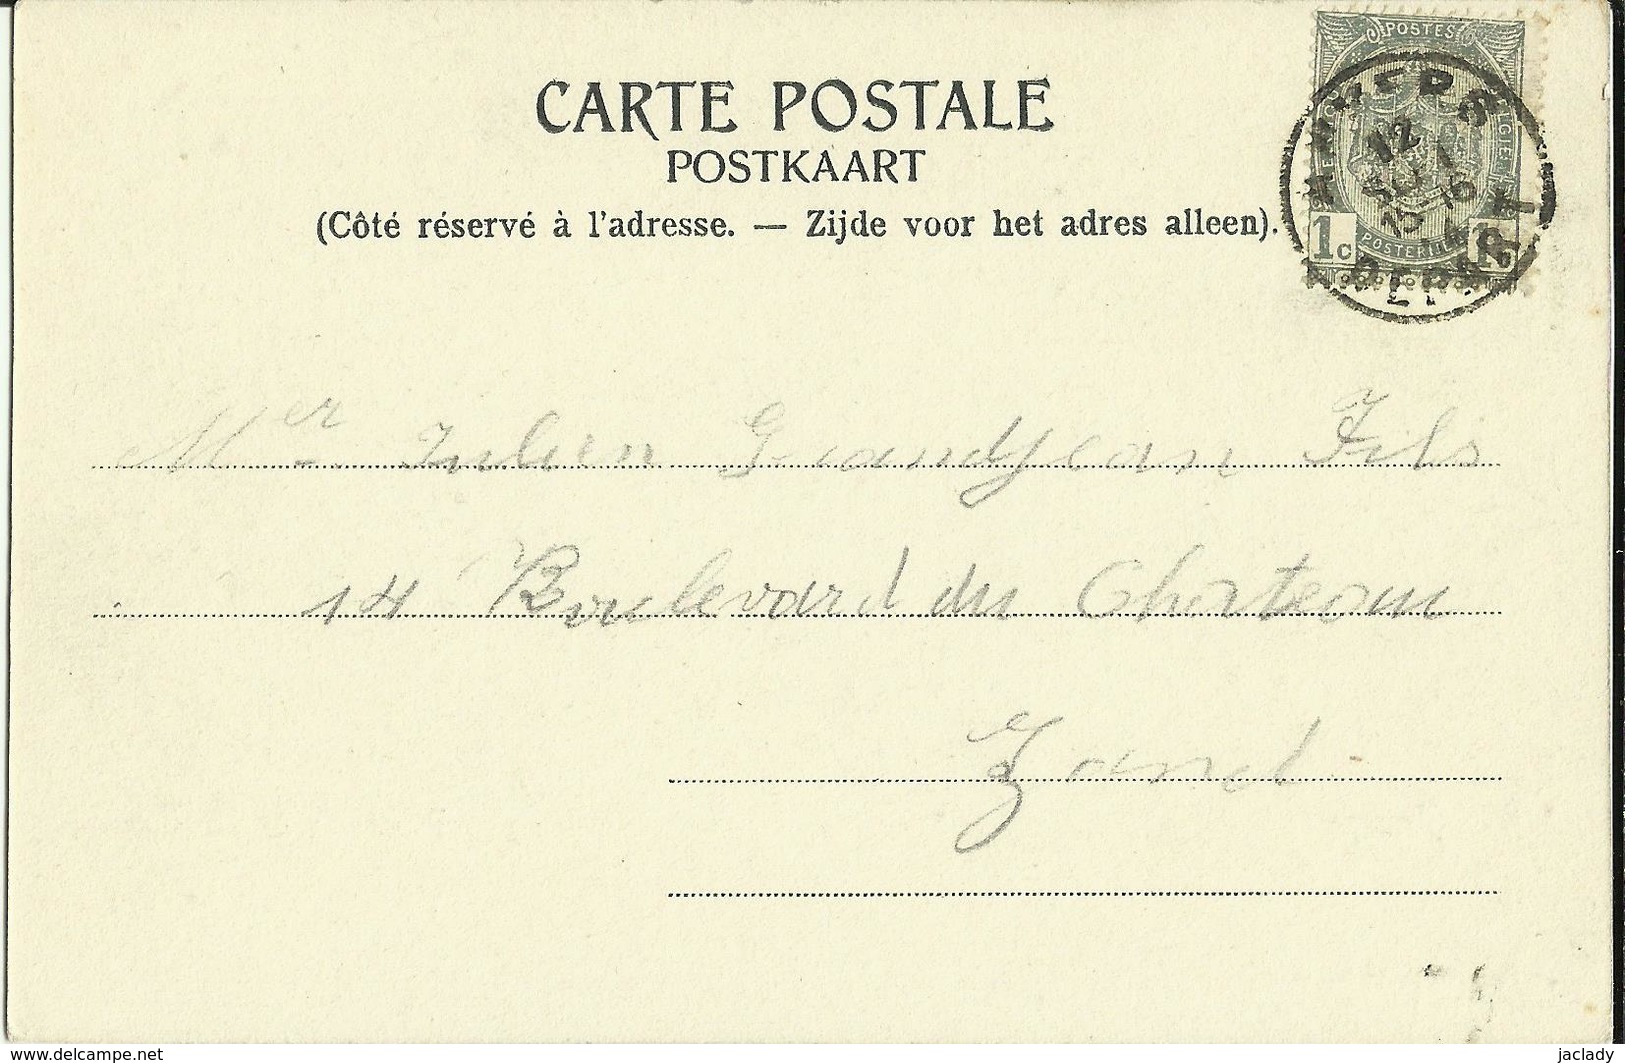 POSTES
CARTE POSTALE
POSTKAART
(Côté réservé à l'adresse. — Zijde voor het adres alleen).
ANVERS
12
15-16
1c
DEPART
Mer Julien Grandjean Fils
14 Boulevard du Chateau
Gand
www.delcampe.net
jaclady